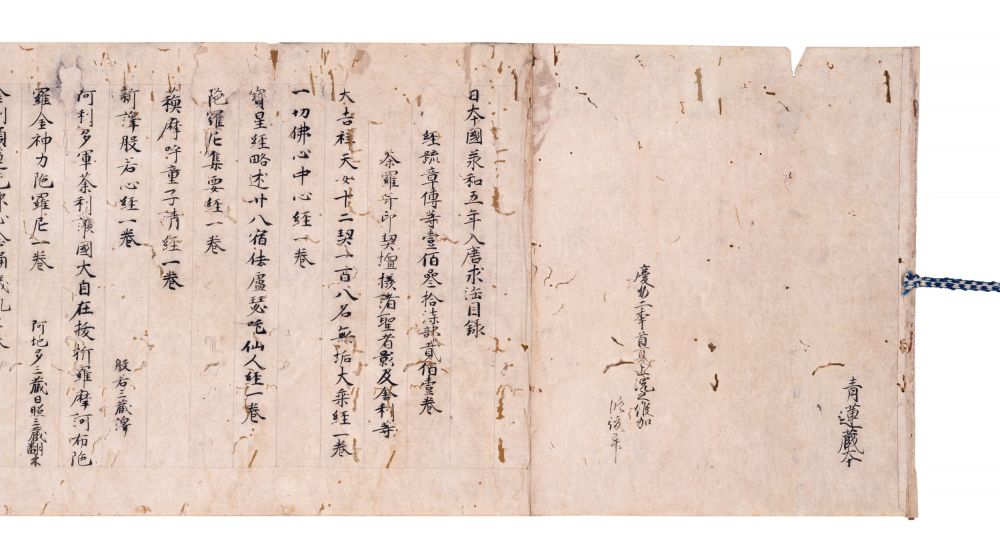 青蓮蔵本
慶安二季首夏上澣之維加
修復畢
日本國承和五年入唐求法目錄
經疏章傳等壹佰叁拾柒部貳佰壹卷
荼羅并印契壇樣諸聖者影及舍利等
大吉祥天女十二契一百八名無垢大乘經一卷
一切佛心中心經一卷
寶星經略述廿八宿佉盧瑟吒仙人經一卷
陀羅尼集要經一卷
䅾摩呼童子請經一卷
新譯般若心經一卷 般若三藏譯
阿利多軍荼利護國大自在拔折羅摩訶布陀
羅金神力陀羅尼一卷 阿地多三藏日照三藏翻本